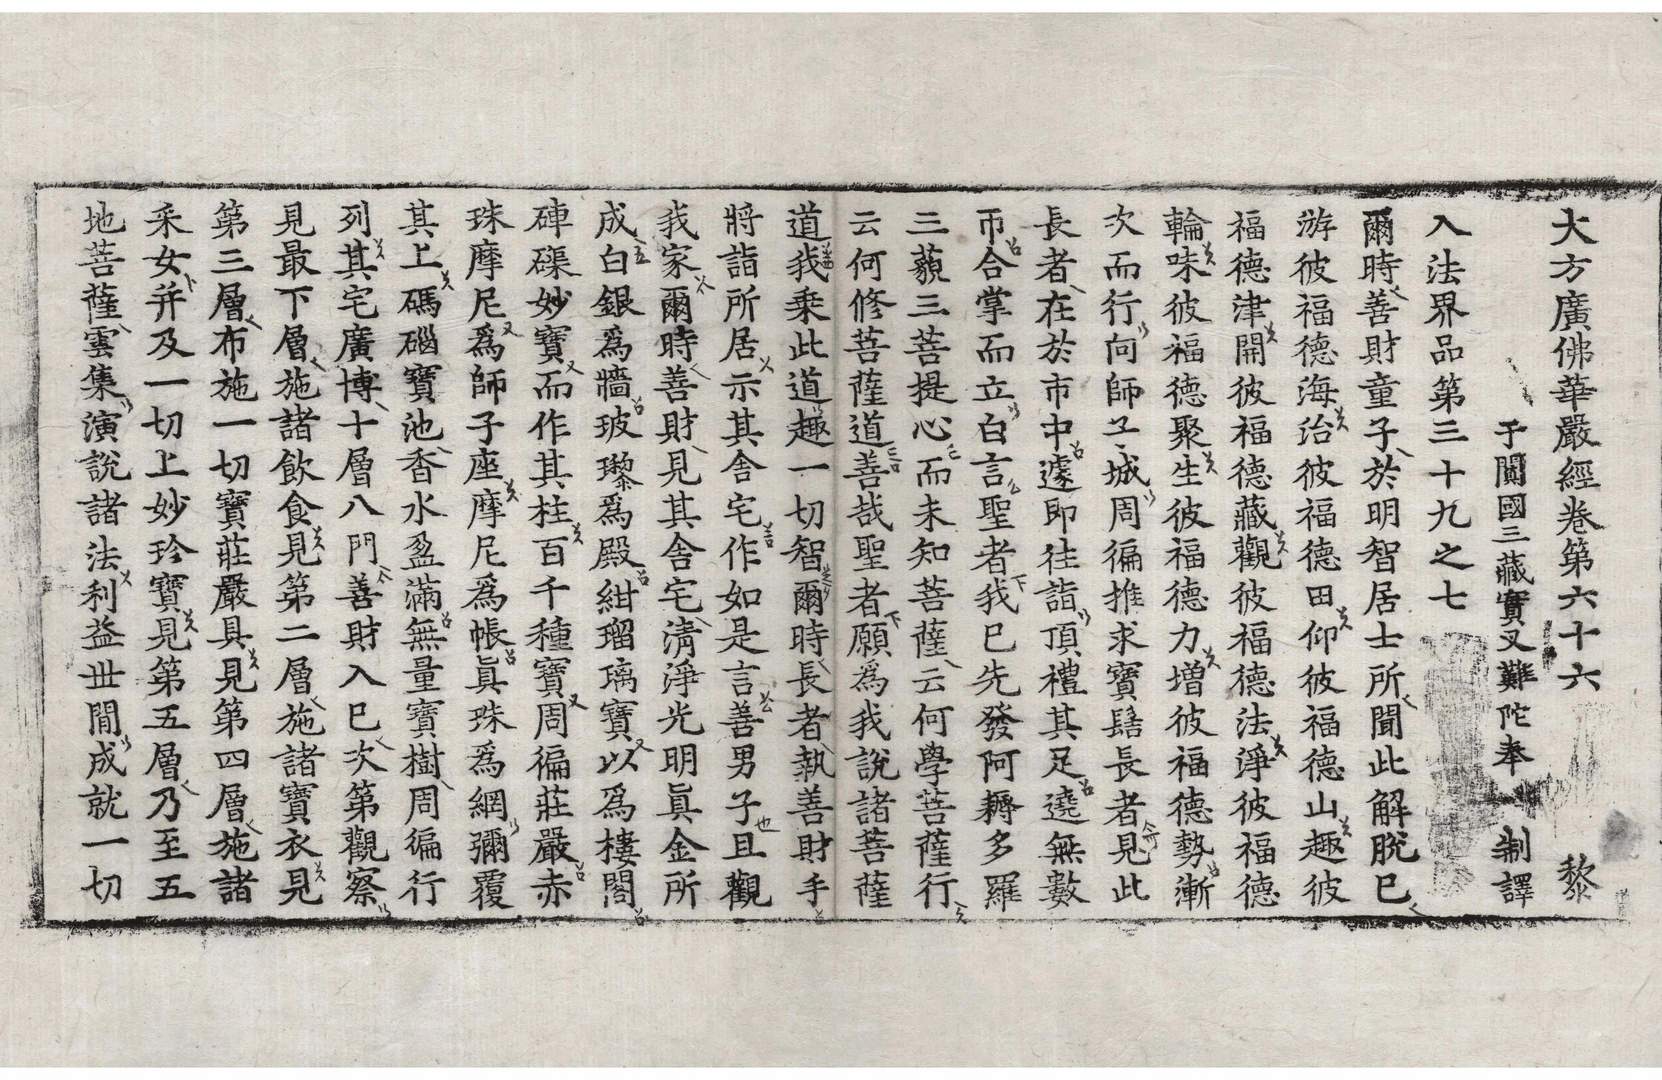 大方廣佛華嚴經卷第六十六 黎
于闐國三藏實叉難陀奉 制譯
入法界品第三十九之七
爾時善財童子於明智居士所聞此解脫已
游彼福德海治彼福德田仰彼福德山趣彼
福德津開彼福德藏觀彼福德法淨彼福德
輪味彼福德聚生彼福德力增彼福德勢漸
次而行向師子城周徧推求寶髻長者見此
長者在於市中遽即往詣頂禮其足遶無數
帀合掌而立白言聖者我已先發阿耨多羅
三藐三菩提心而未知菩薩云何學菩薩行
云何修菩薩道善哉聖者願爲我說諸菩薩
道我乘此道趣一切智爾時長者執善財手
將詣所居示其舍宅作如是言善男子且觀
我家爾時善財見其舍宅清淨光明真金所
成白銀爲牆玻瓈爲殿紺瑠璃寶以爲樓閣
硨磲妙寶而作其柱百千種寶周徧莊嚴赤
珠摩尼爲師子座摩尼爲帳眞珠爲網彌覆
其上碼碯寶池香水盈滿無量寶樹周徧行
列其宅廣博十層八門善財入已次第觀察
見最下層施諸飲食見第二層施諸寶衣見
第三層布施一切寶莊嚴具見第四層施諸
采女并及一切上妙珍寶見第五層乃至五
地菩薩雲集演說諸法利益世間成就一切